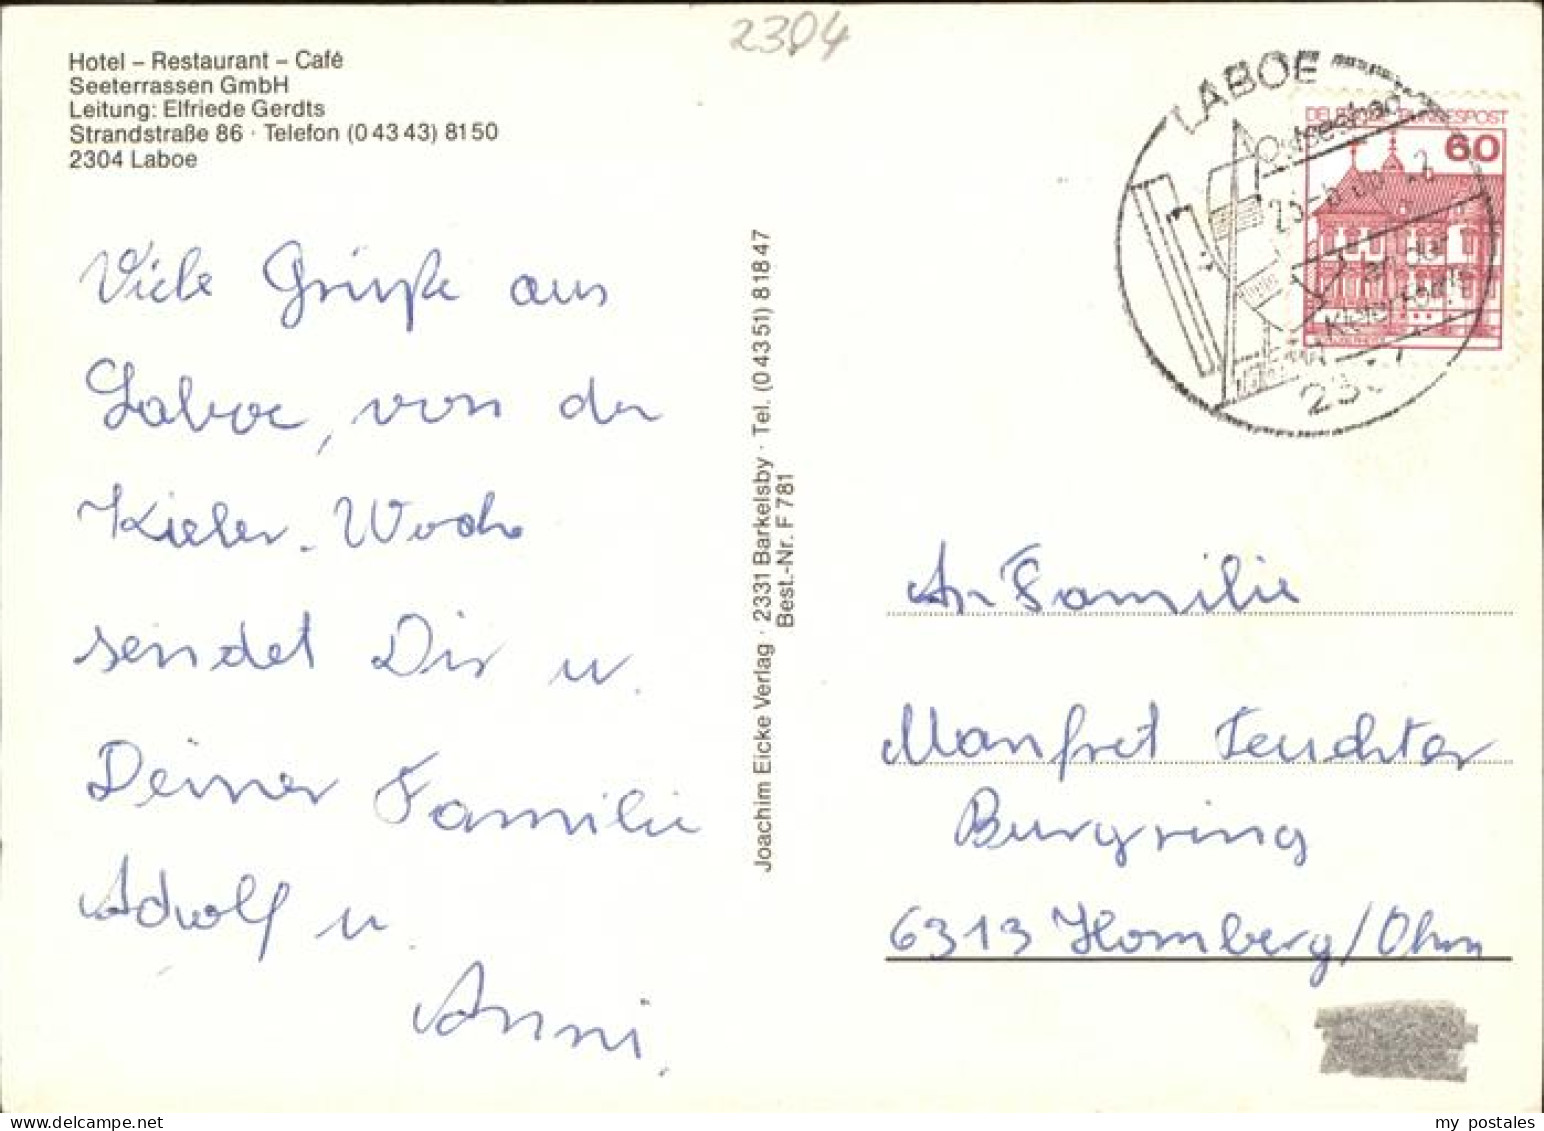 2304
Hotel – Restaurant – Café
Seeterrassen GmbH
Leitung: Elfriede Gerdts
Strandstraße 86 · Telefon (0 43 43) 81 50
2304 Laboe
LABOE
Ostseebad
an der
Kieler Förde
DEUTSCHE BUNDESPOST
60
Viele Grüße aus
Laboe, von der
Kieler-Woche
sendet Dir u.
Deiner Familie
Adolf u.
Anni.
Joachim Eicke Verlag · 2331 Barkelsby · Tel. (0 43 51) 8 18 47
Best.-Nr. F 781
An Familie
Manfret Feuchter
Burgring
6313 Homberg/Ohm
my postales